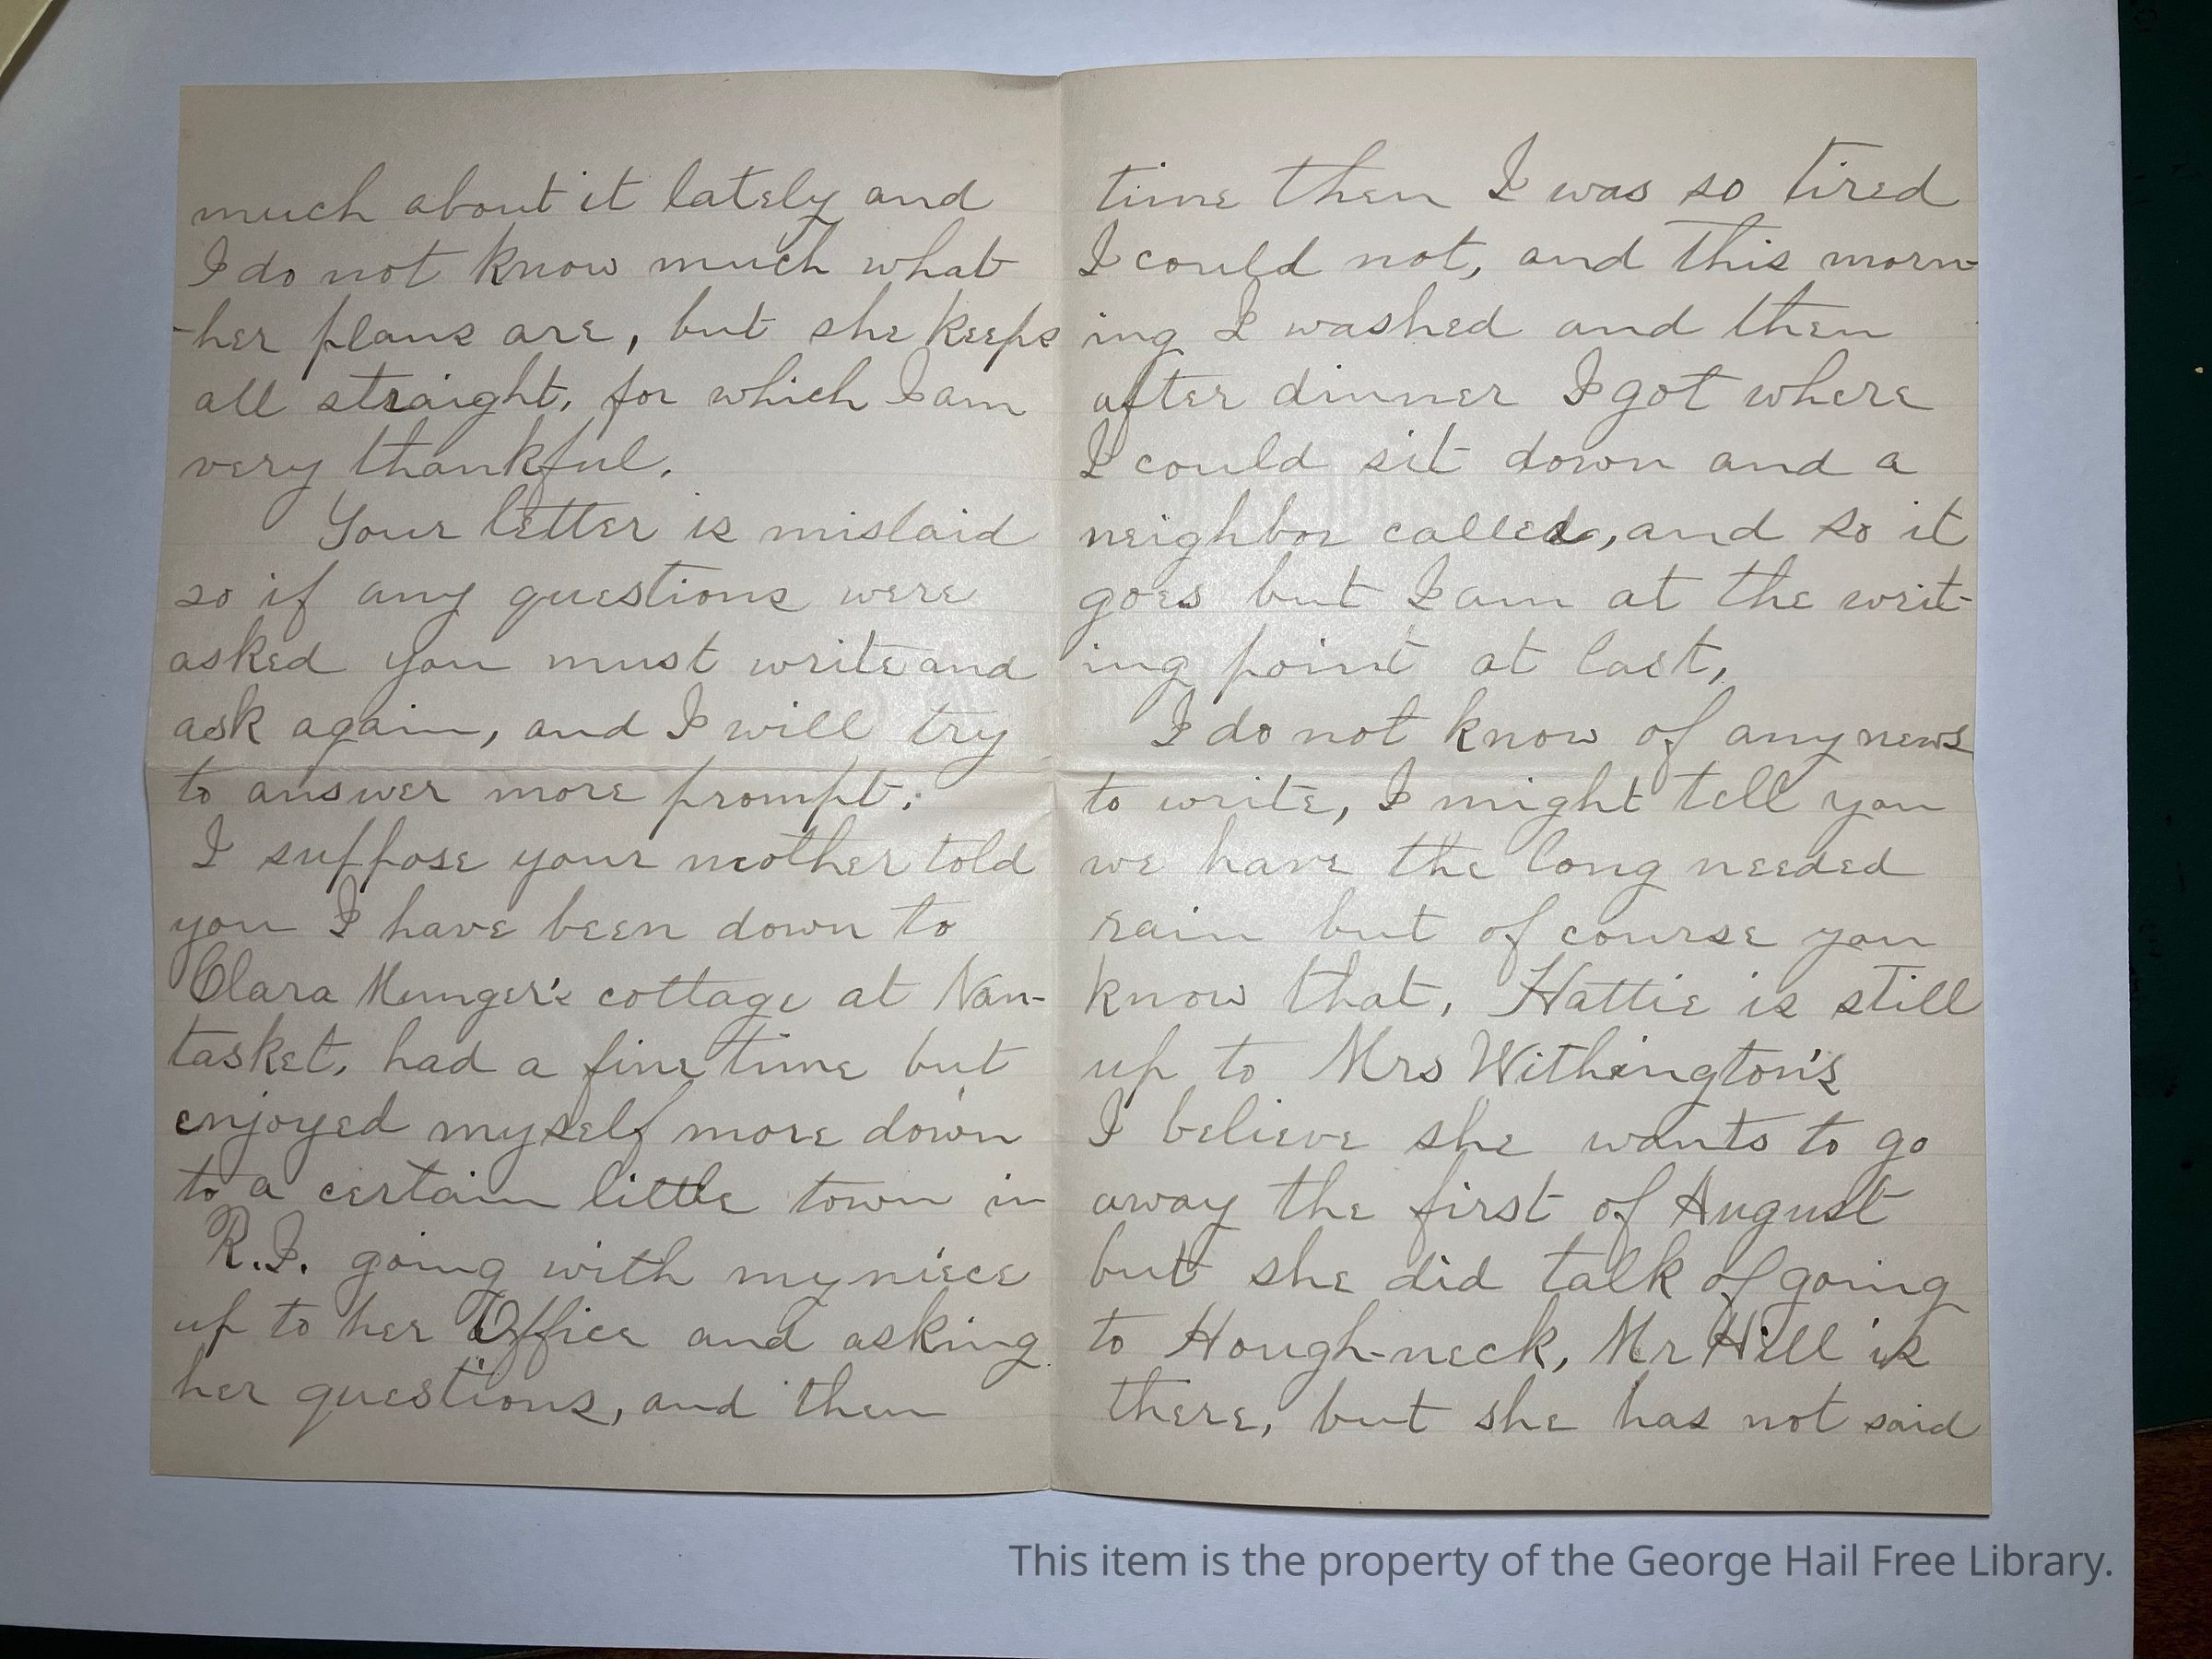 much about it lately and
I do not know much what
her plans are, but she keeps
all straight, for which I am
very thankful.
Your letter is mislaid
so if any questions were
asked you must write and
ask again, and I will try
to answer more prompt;
I suppose your mother told
you I have been down to
Clara Munger's cottage at Nan-
tasket, had a fine time but
enjoyed myself more down
to a certain little town in
R.I. going with my niece
up to her Office and asking
her questions, and then
time then I was so tired
I could not, and this morn-
ing I washed and then
after dinner I got where
I could sit down and a
neighbor called, and so it
goes but I am at the writ-
ing point at last,
I do not know of any news
to write, I might tell you
we have the long needed
rain but of course you
know that, Hattie is still
up to Mrs Withington's
I believe she wants to go
away the first of August
but she did talk of going
to Hough-neck, Mr Hill is
there, but she has not said
This item is the property of the George Hail Free Library.